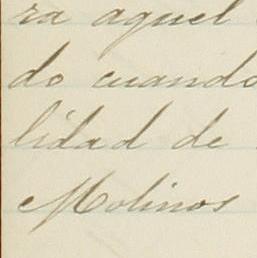 ra aquel
do cuando
lidad de
Molinos